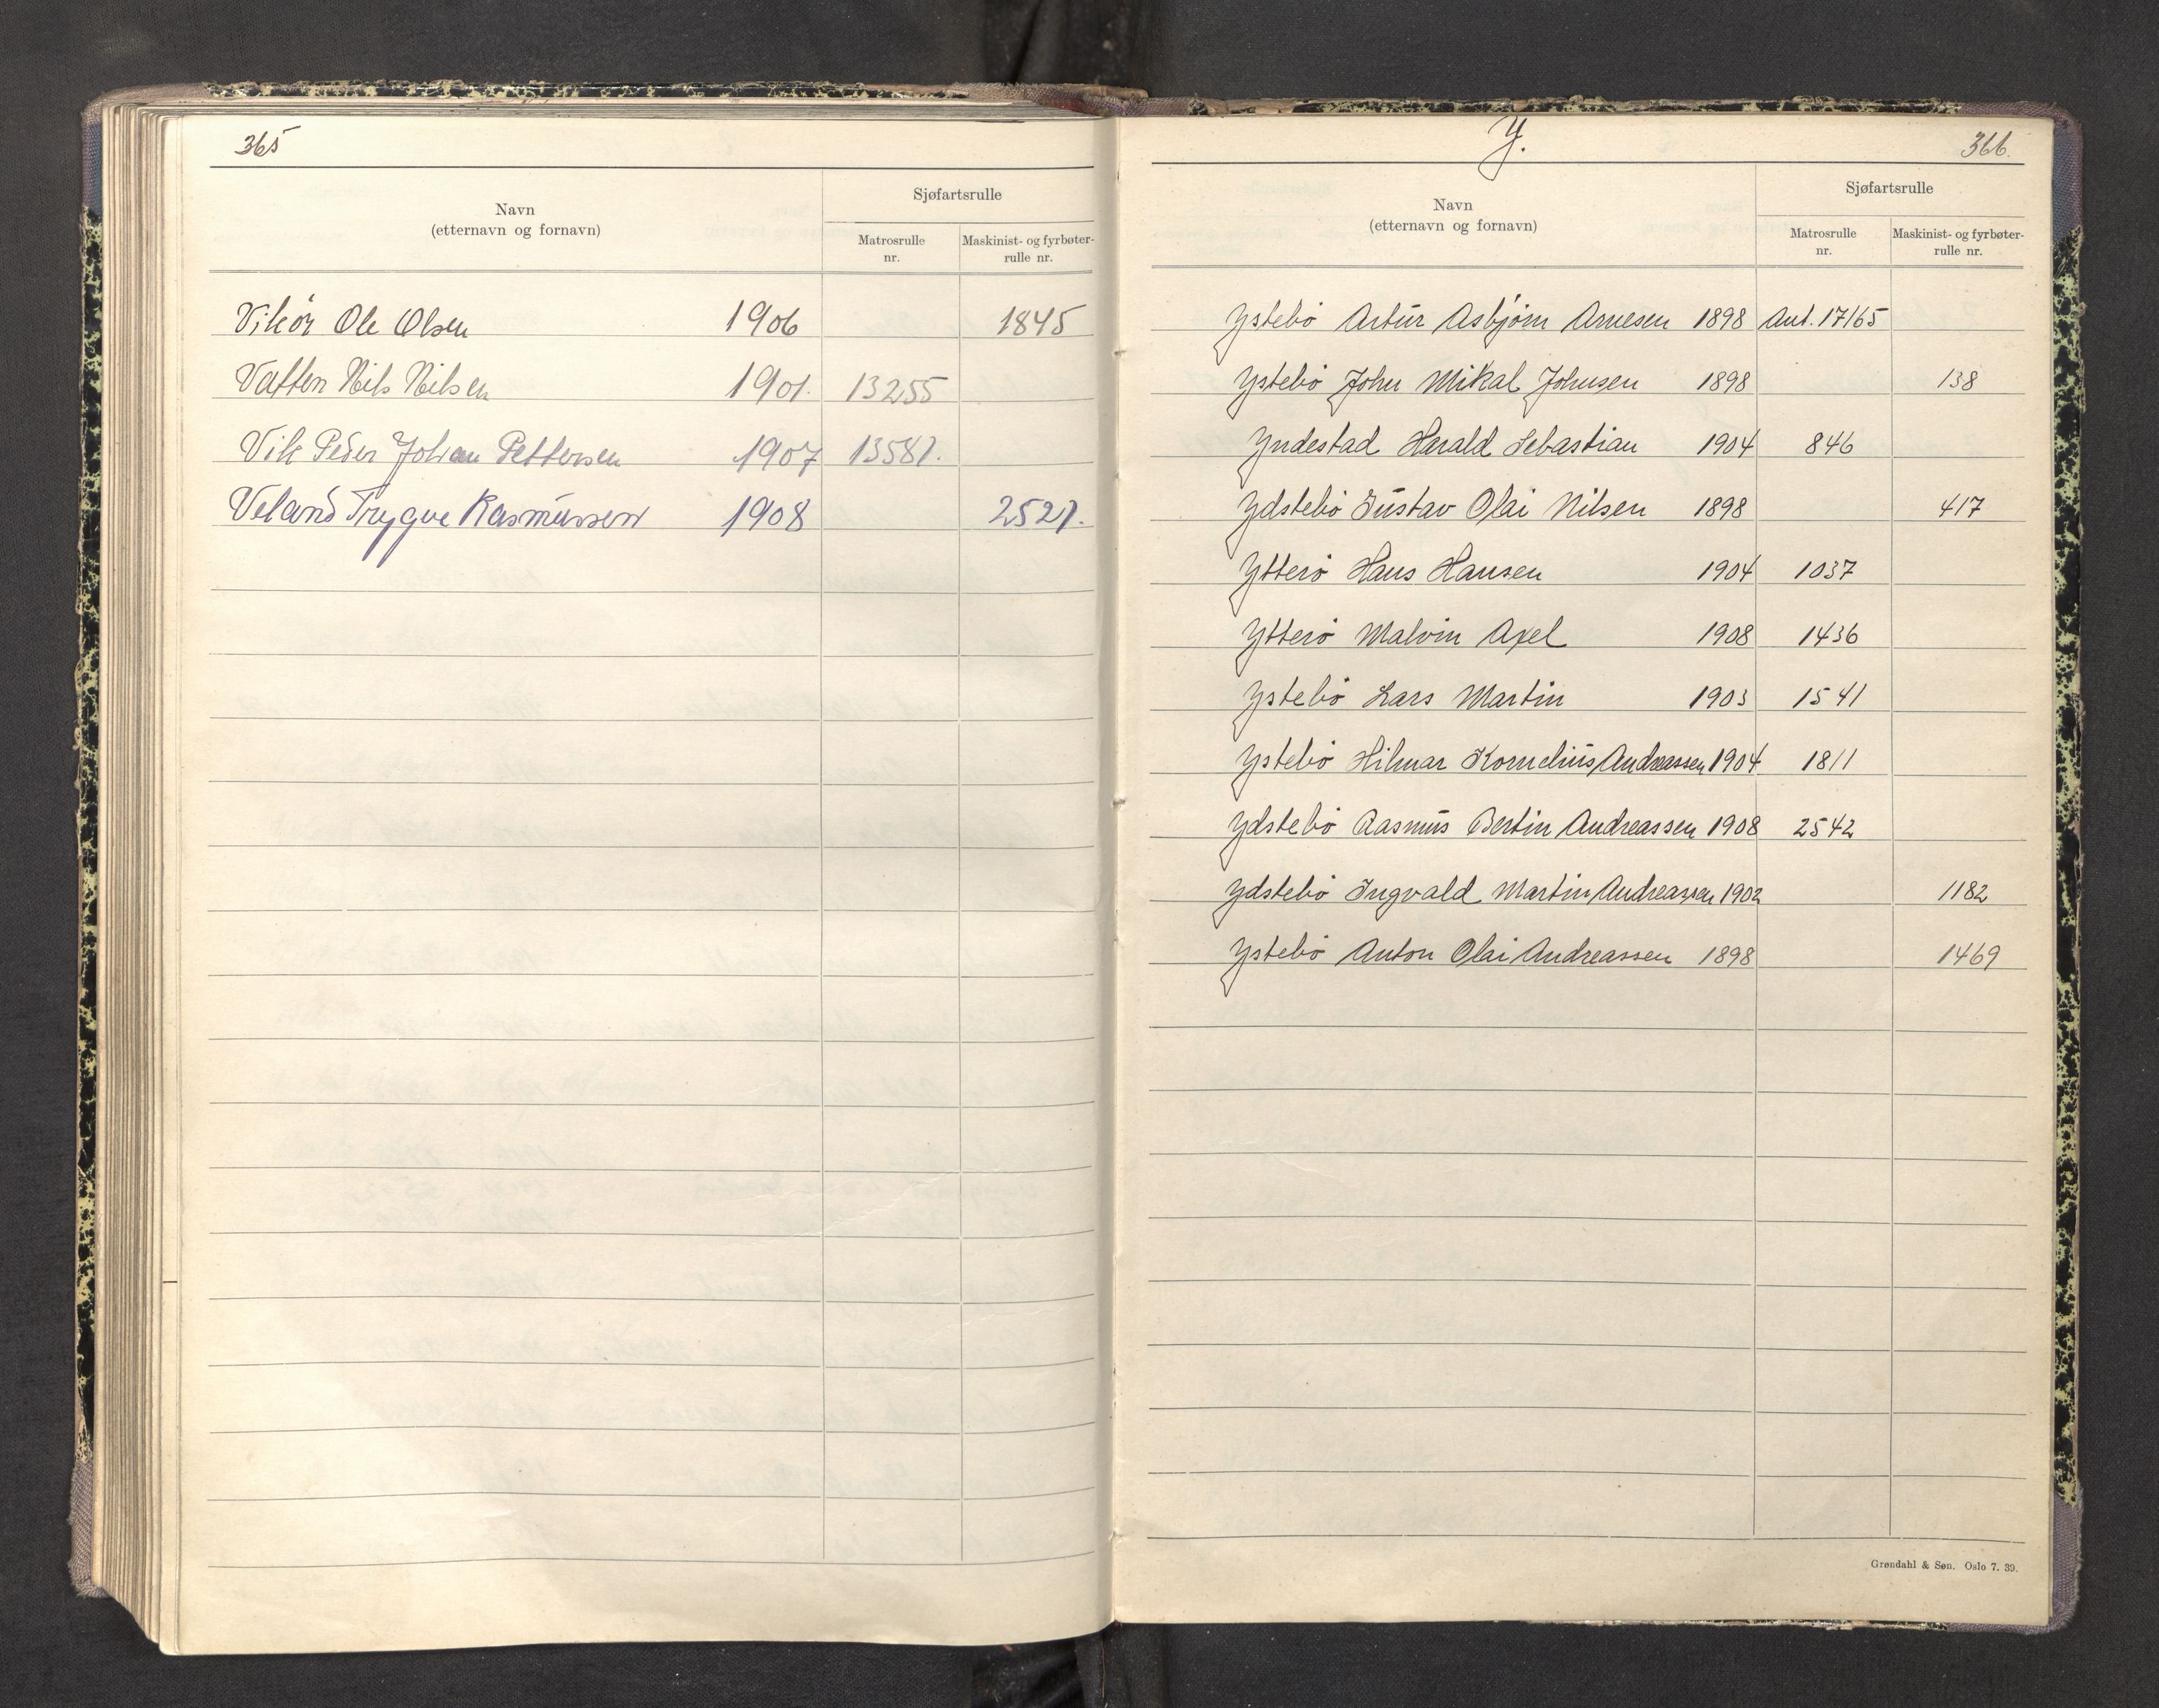 365
Navn
(etternavn og fornavn)
Sjøfartsrulle
Matrosrulle nr.
Maskinist- og fyrbøter-rulle nr.
Vikør Ole Olsen 1906 1845
Vatten Nils Nilsen 1901. 13255
Vik Peder Johan Pettersen 1907 13581.
Veland Trygve Rasmussen 1908 2521.
Y.
366.
Navn
(etternavn og fornavn)
Sjøfartsrulle
Matrosrulle nr.
Maskinist- og fyrbøter-rulle nr.
Ystebö Artur Asbjörn Arnesen 1898 Ant. 17165
Ystebö John Mikal Johnsen 1898 138
Yndestad Harald Sebastian 1904 846
Ydstebö Gustav Olai Nilsen 1898 417
Ytterö Hans Hansen 1904 1037
Ytterö Malvin Axel 1908 1436
Ystebö Lars Martin 1903 1541
Ystebö Hilmar Kornelius Andreassen 1904 1811
Ydstebö Rasmus Bertin Andreassen 1908 2542
Ydstebö Ingvald Martin Andreassen 1902 1182
Ystebö Anton Olai Andreassen 1898 1469
Grøndahl & Søn. Oslo 7. 39.